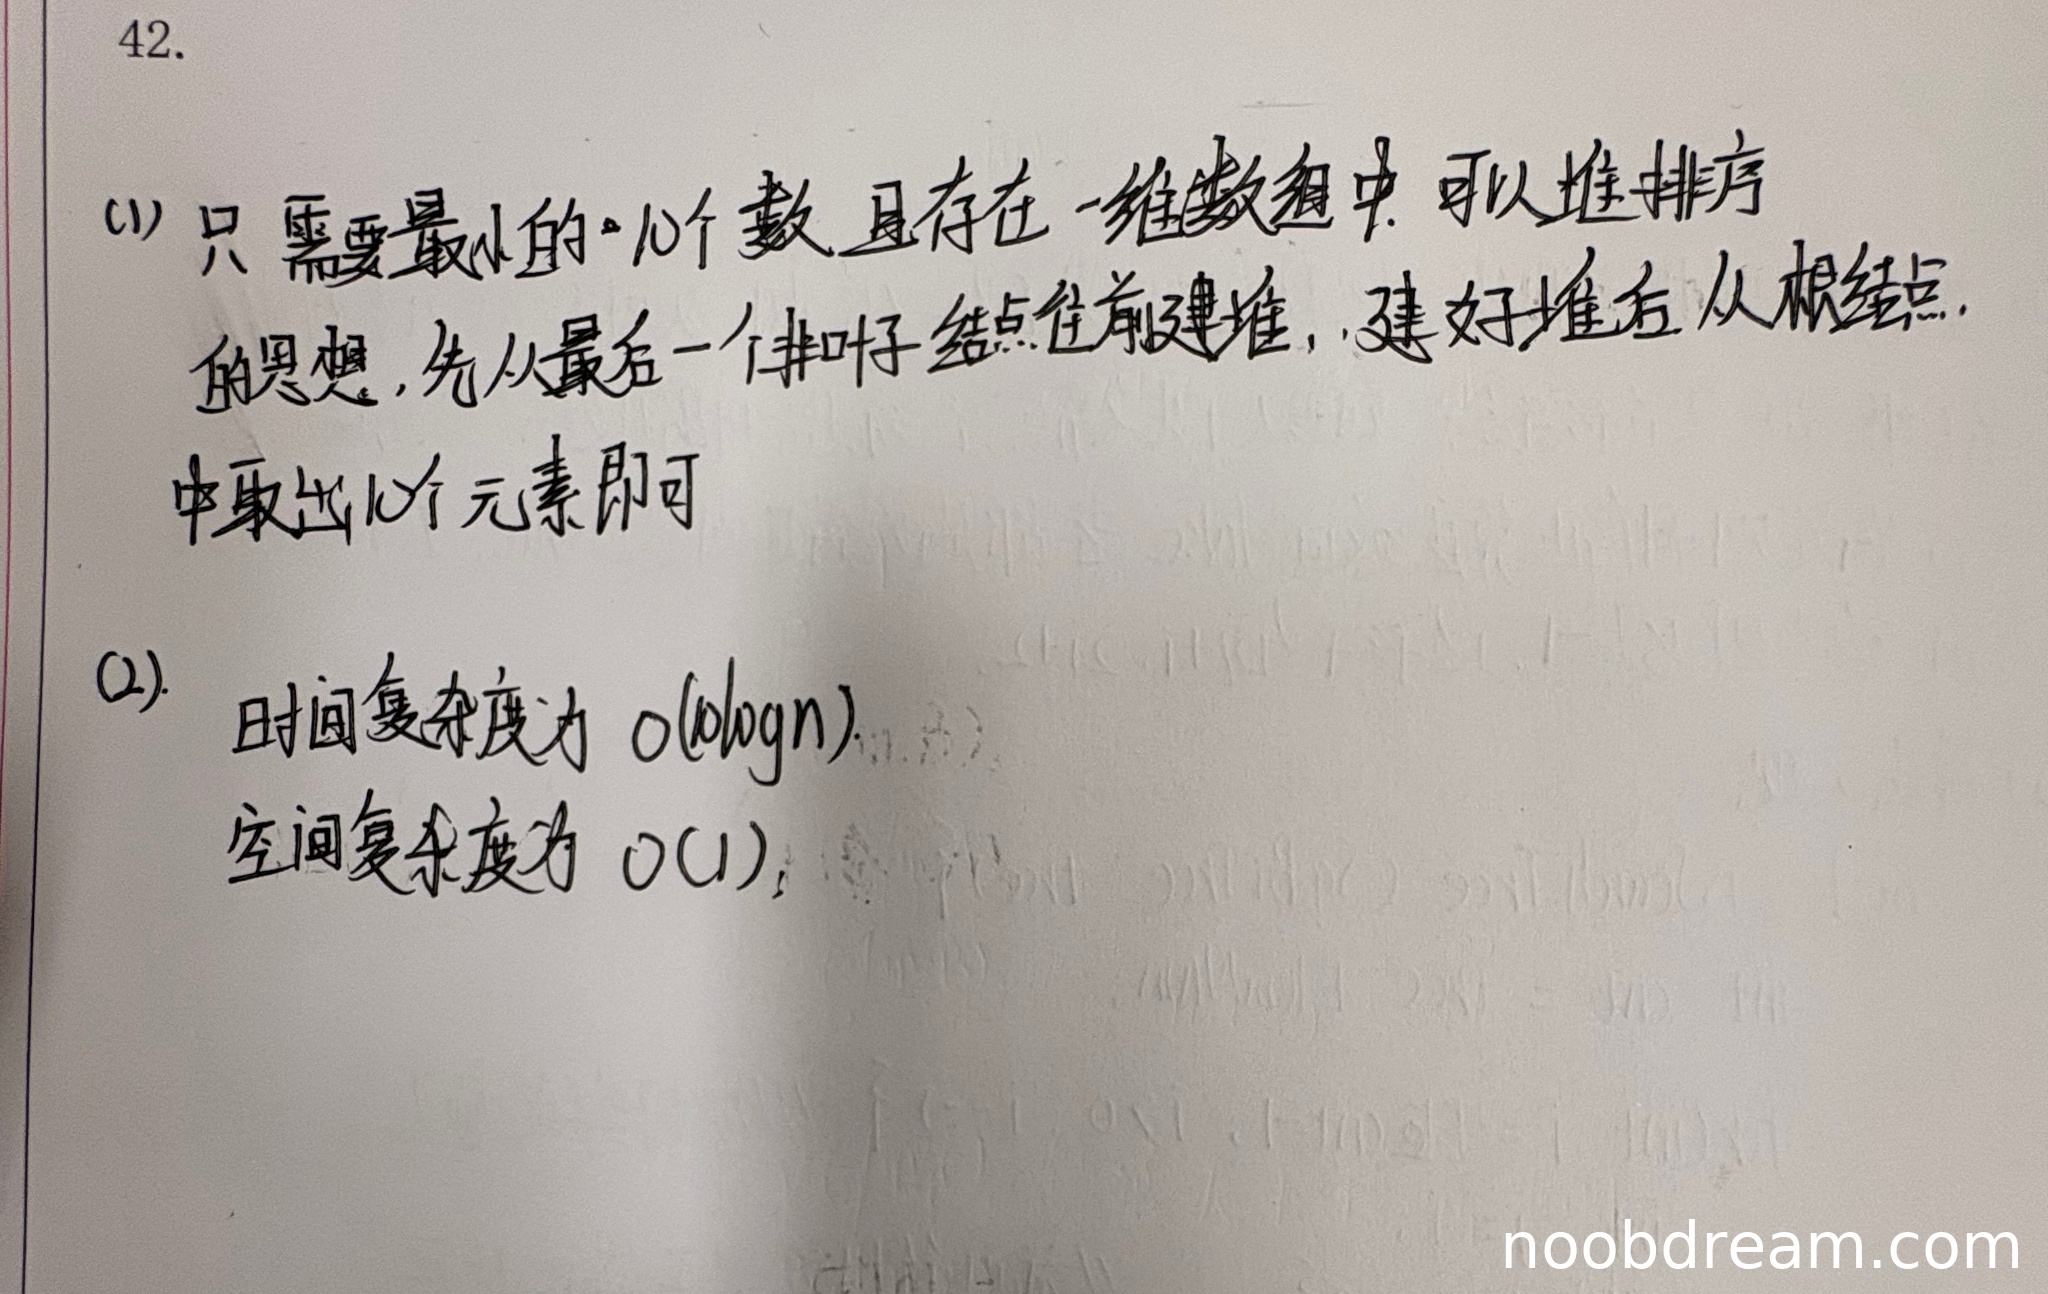 42.
(1) 只需要最小的10个数且存在一维数组中.可以堆排序
的思想,先从最后一个非叶子结点往前建堆,建好堆后从根结点.
中取出10个元素即可
(2).
时间复杂度为 O(10logn).
空间复杂度为 O(1);
noobdream.com